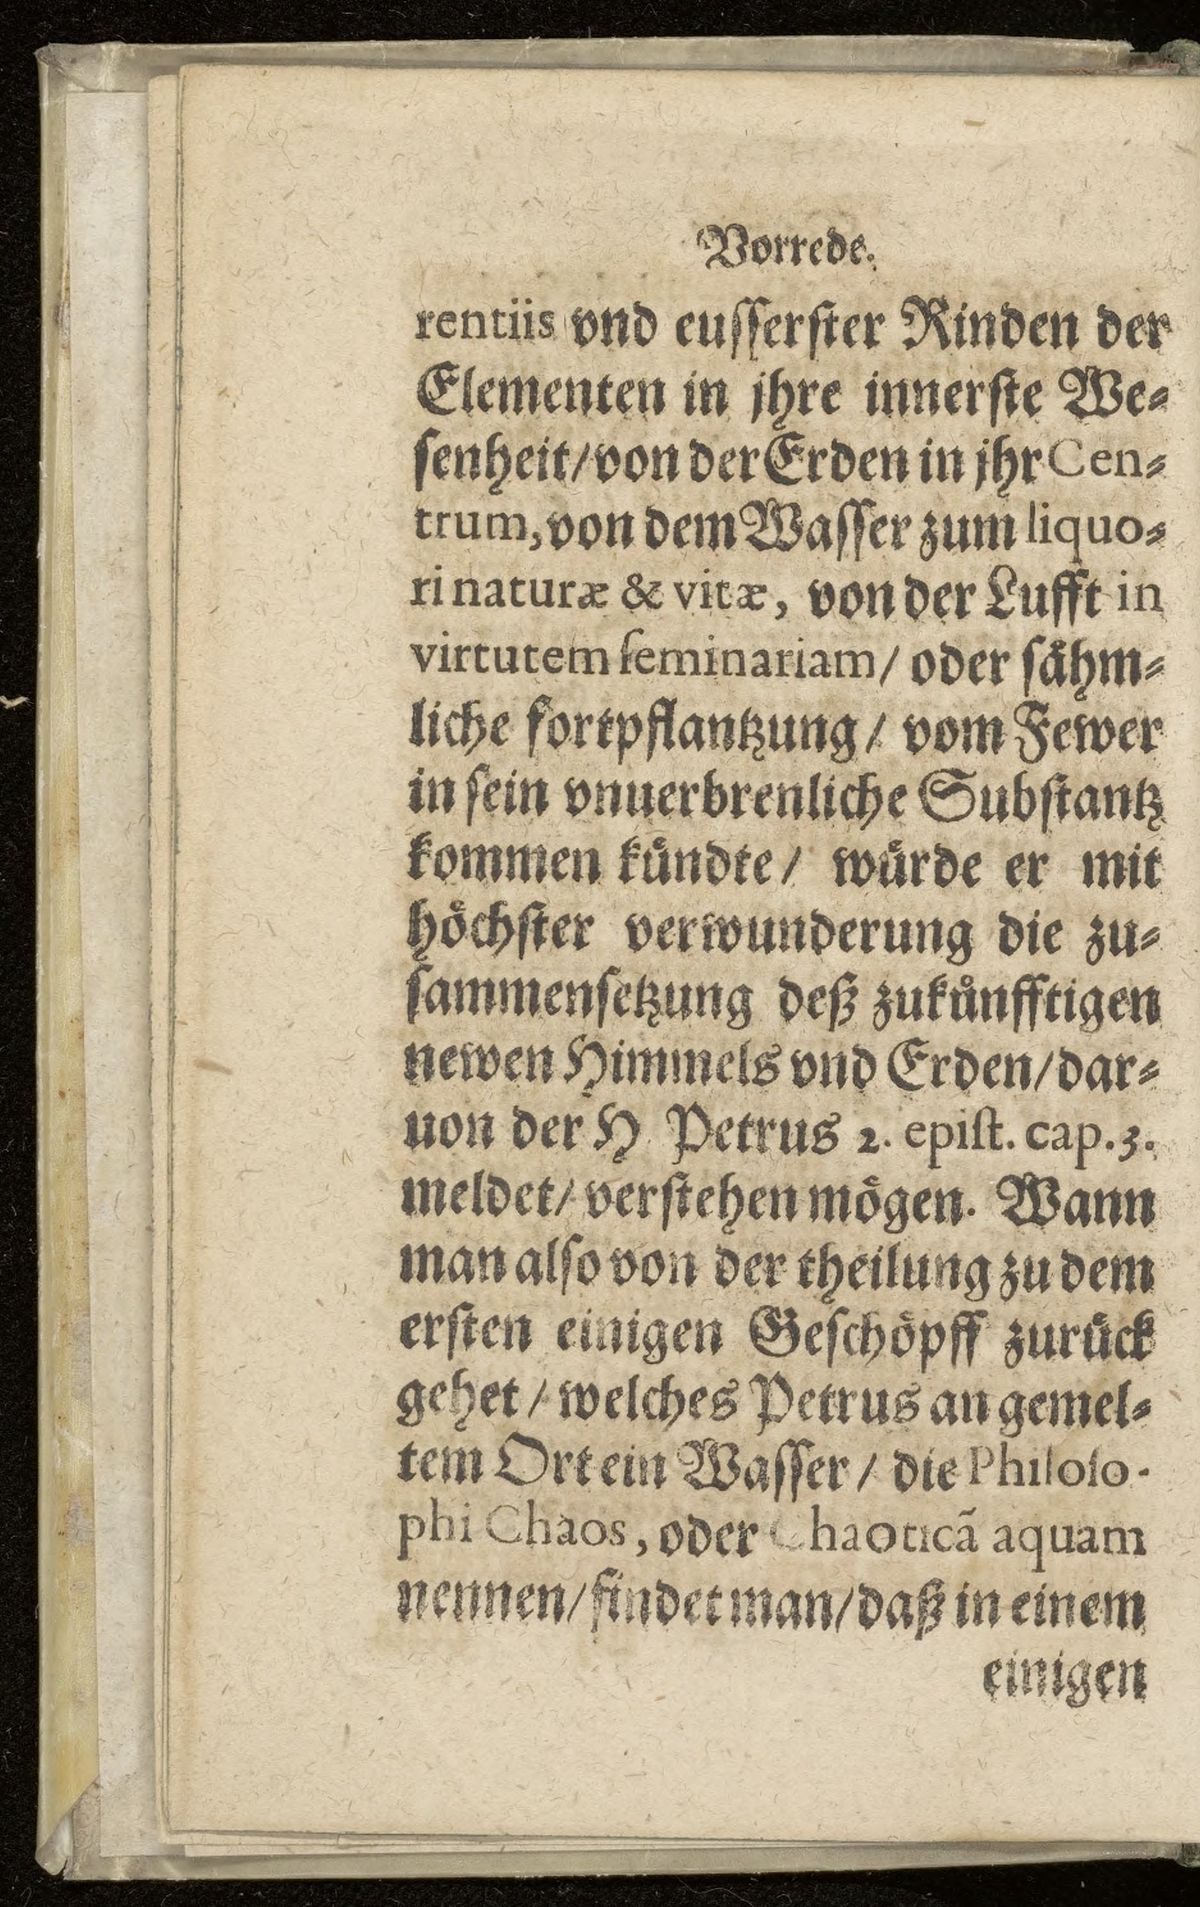 Vorrede.
rentiis vnd eusserster Rinden der
Elementen in jhre innerste We⸗
senheit/von der Erden in jhr Cen⸗
trum, von dem Wasser zum liquo⸗
ri naturæ & vitæ, von der Lufft in
virtutem ſeminariam/ oder såhm⸗
liche fortpflantzung/ vom Fewer
in sein vnuerbrenliche Substantz
kommen kůndte/ wůrde er mit
hőchster verwunderung die zu⸗
sammensetzung deß zukůnfftigen
newen Himmels vnd Erden/dar⸗
uon der H Petrus 2. epiſt. cap.3.
meldet/ verstehen mőgen. Wann
man also von der theilung zu dem
ersten einigen Geschőpff zurůck
gehet/ welches Petrus an gemel⸗
tem Ort ein Wasser/ die Philoſo-
phi Chaos, oder Chaoticã aquam
nennen/findet man/daß in einem
einigen